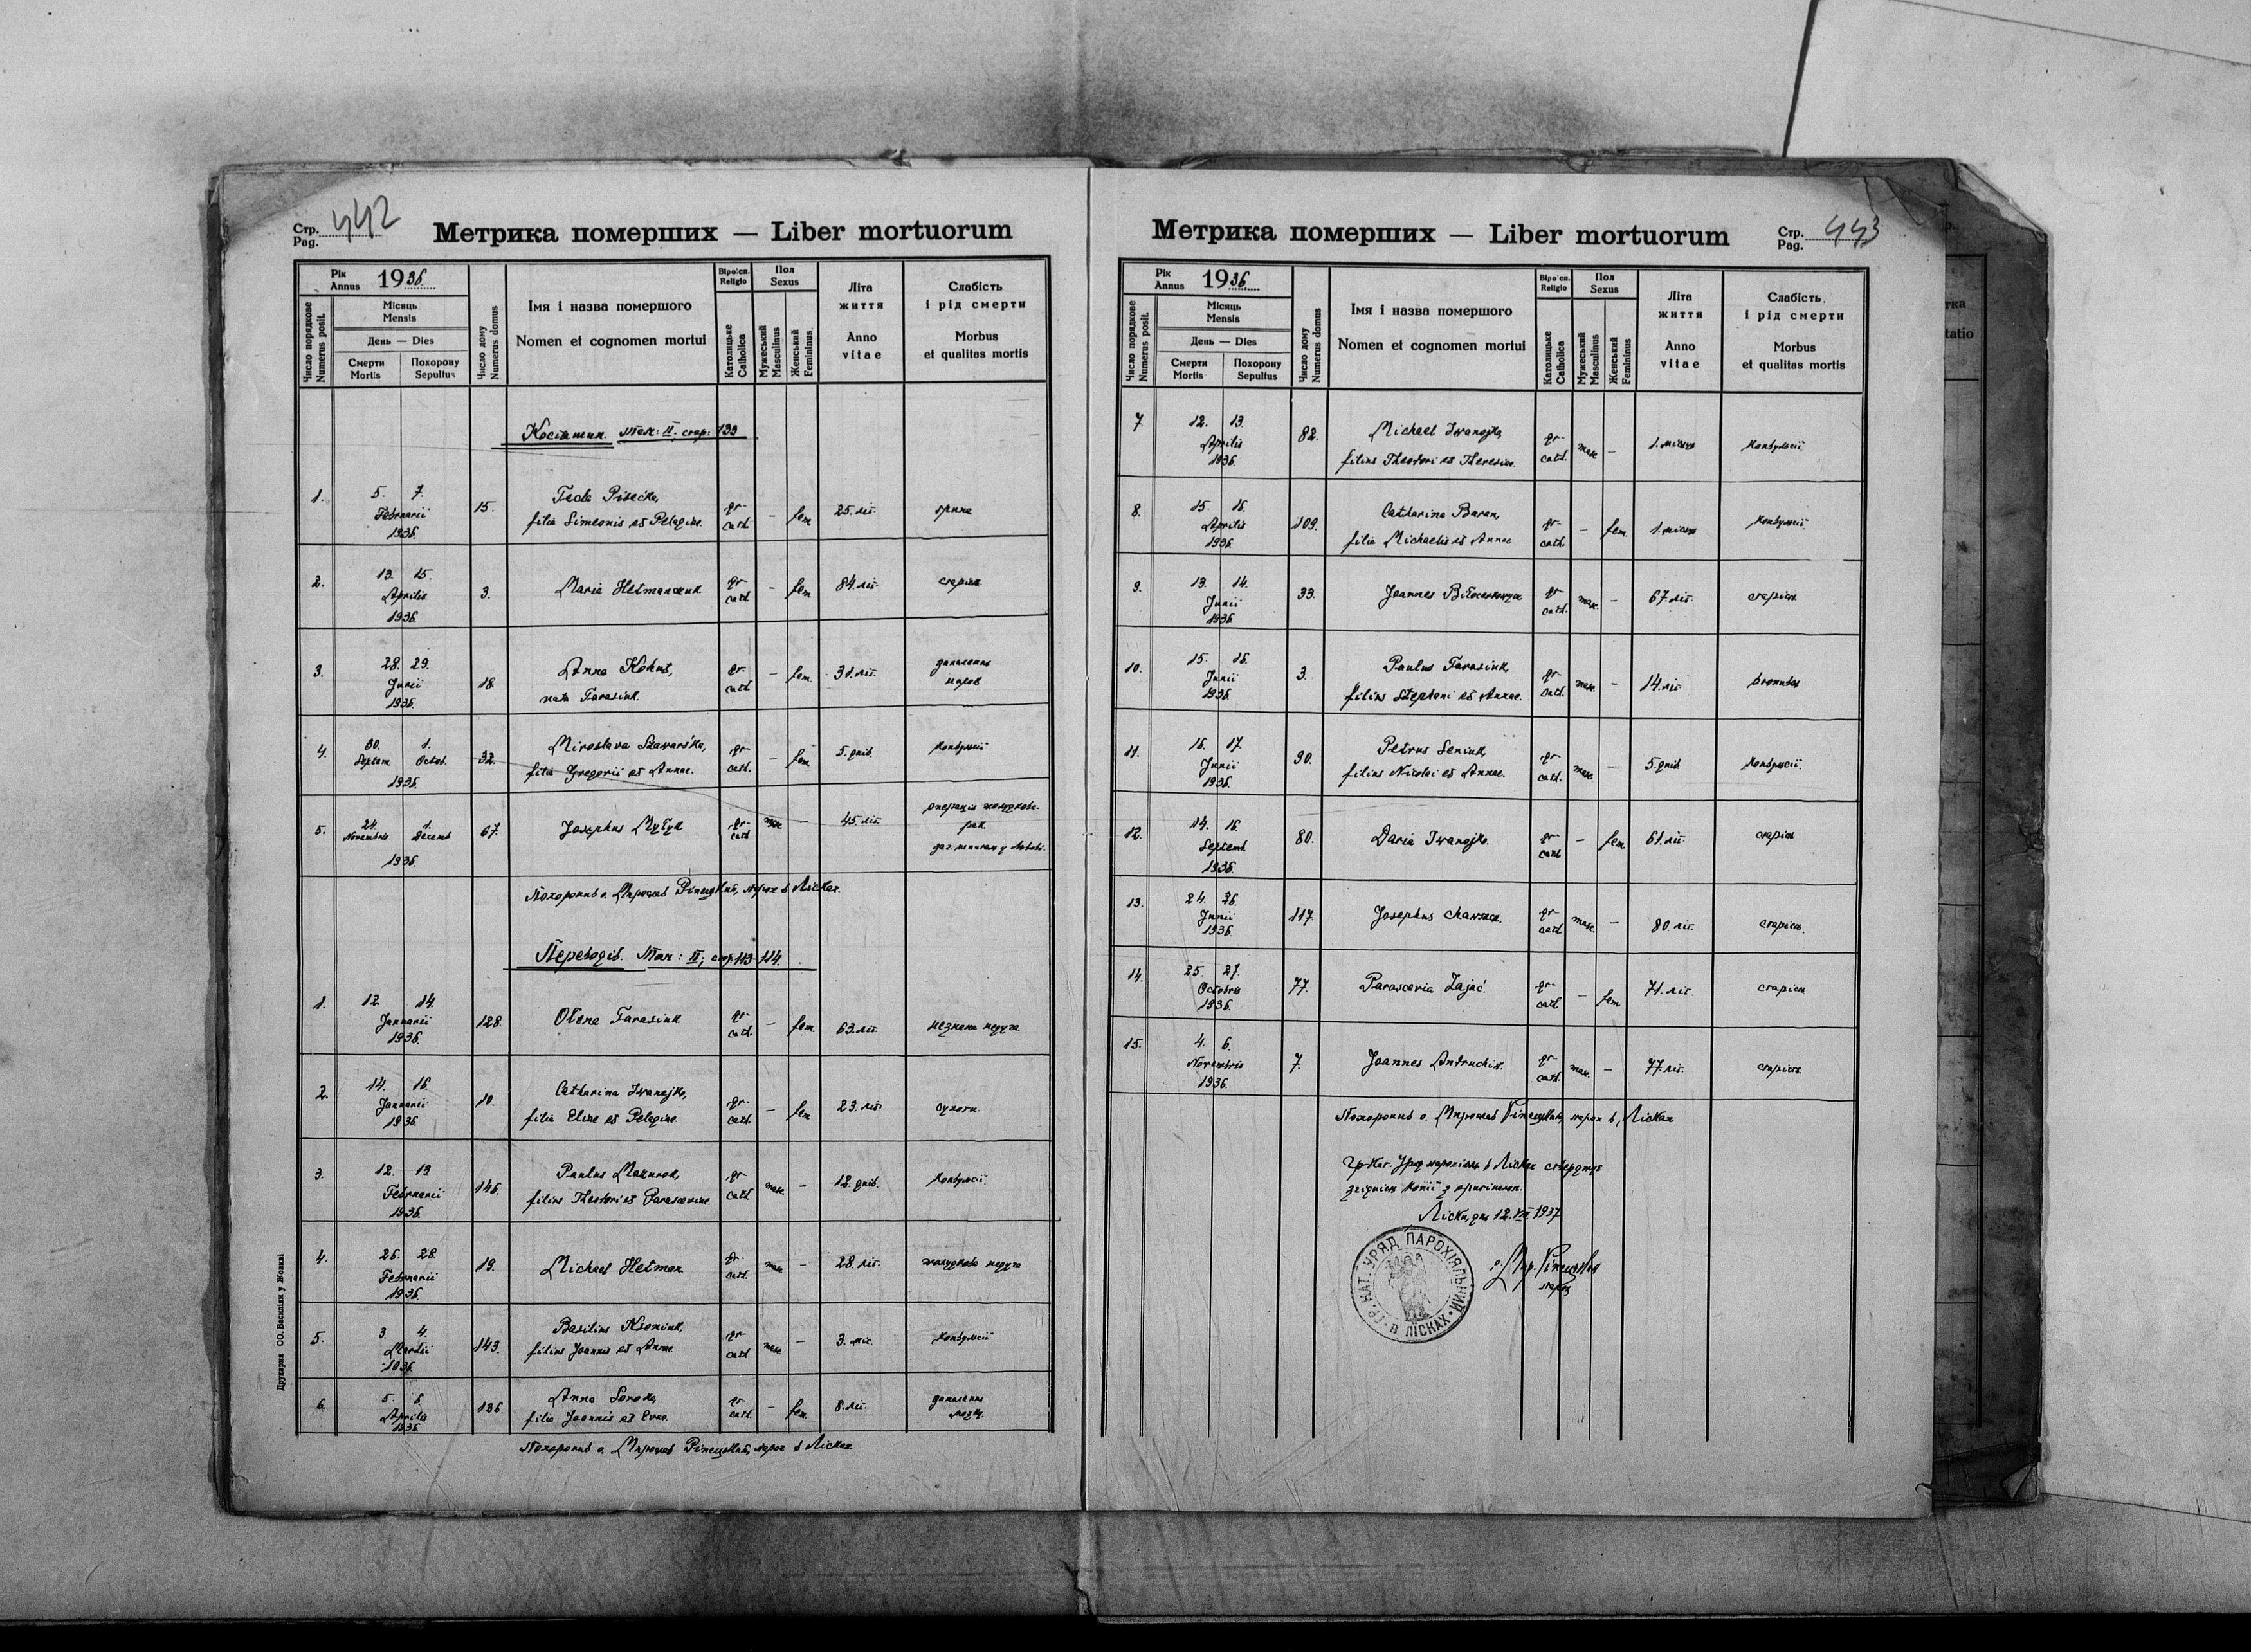 Стр. 442
Pag.
Метрика померших — Liber mortuorum
Рік
Annus 1936.
Місяць
Mensis
День — Dies
Смерти
Mortis
Похорону
Sepultus
Число порядкове
Numerus posit.
Число дому
Numerus domus
Імя і назва помершого
Nomen et cognomen mortui
Віроісп.
Religio
Католицьке
Catholica
Пол
Sexus
Мужеський
Masculinus
Женський
Femininus
Літа
життя
Anno
vitae
Слабість
і рід смерти
Morbus
et qualitas mortis
стор: 133
1. 5. 7. Februarii 1936. 15.
filia Simeonis et Pelagiae. gr. cath. — fem. 25. літ.
2. 13. 15. Aprilis 1936. 3. Maria Hetmanczuk gr. cath. — fem. 84. літ. старість
3. 28. 29. Junii 1936. 18. Anna Kohut,
nata Tarasiuk. gr. cath. — fem. 31. літ. запалення
4. 30. Septem. 1. Octob. 1936. 32. Miroslava Szawarśka,
filia Gregorii et Annae. gr. cath. — fem. 5. днів. конвульсії
5. 24. Novembris 1. Decemb. 1936. 67. Josephus gr. cath. masc. — 45. літ. операція
рак
Похоронив о. Мирослав Ріпецький, парох в Лісках.
Переводів. Том: II; стор. 113-114.
1. 12. 14. Januarii 1936. 128. Ołena Tarasiuk gr. cath. — fem. 63. літ. незнана недуга
2. 14. 16. Januarii 1936. 10. Catharina Iwanejko,
filia Eliae et Pelagiae. gr. cath. — fem. 23. літ. сухоти.
3. 12. 13. Februarii 1936. 146. Paulus Mazurok,
filius Theodori et Parasceviae. gr. cath. masc. — 12. днів. конвульсії
4. 26. 28. Februarii 1936. 19. Michael Hetman gr. cath. masc. — 28. літ. жолудкова недуга
5. 3. 4. Martii 1936. 143. Basilius Kseniuk,
filius Joannis et Annae gr. cath. masc. — 3. міс. конвульсії
6. 5. 6. Aprilis 1936. 126. Anna Soroka,
filia Joannis et Evae. gr. cath. — fem. 8. літ. запалення
мозку.
Похоронив о. Мирослав Ріпецький, парох в Лісках
Друкарня ОО. Василіян у Жовкві
Стр. 443
Pag.
Метрика померших — Liber mortuorum
Рік
Annus 1936.
Місяць
Mensis
День — Dies
Смерти
Mortis
Похорону
Sepultus
Число порядкове
Numerus posit.
Число дому
Numerus domus
Імя і назва помершого
Nomen et cognomen mortui
Віроісп.
Religio
Католицьке
Catholica
Пол
Sexus
Мужеський
Masculinus
Женський
Femininus
Літа
життя
Anno
vitae
Слабість
і рід смерти
Morbus
et qualitas mortis
7. 12. 13. Aprilis 1936. 82. Michael Iwanejko,
filius Theodori et Theresiae. gr. cath. masc. — 1. місяць конвульсії
8. 15. 16. Aprilis 1936. 109. Catharina Baran,
filia Michaelis et Annae gr. cath. — fem. 1. місяць конвульсії.
9. 13. 14. Junii 1936. 33. Joannes gr. cath. masc. — 67. літ. старість
10. 15. 16. Junii 1936. 3. Paulus Tarasiuk,
filius Stephani et Annae. gr. cath. masc. — 14. літ.
11. 16. 17. Junii 1936. 90. Petrus Seniuk,
filius Nicolai et Annae. gr. cath. masc. — 5. днів. конвульсії.
12. 14. 16. Septemb. 1936. 80. Daria Iwanejko. gr. cath. — fem. 61. літ. старість
13. 24. 26. Junii 1936. 117. Josephus gr. cath. masc. — 80. літ. старість.
14. 25. 27. Octobris 1936. 77. Parascevia Zajać. gr. cath. — fem. 71. літ. старість
15. 4. 6. Novembris 1936. 7. Joannes Andruchiw. gr. cath. masc. — 77. літ. старість.
Похоронив о. Мирослав Ріпецький, парох в Лісках
Гр.-кат. Уряд парохіяльн. в Лісках стверджує
згідність копії з оригіналом.
Ліски, дня 12. VIII. 1937
ГР. КАТ. УРЯД ПАРОХІЯЛЬНИЙ В ЛІСКАХ
о. Мир. Ріпецький
парох